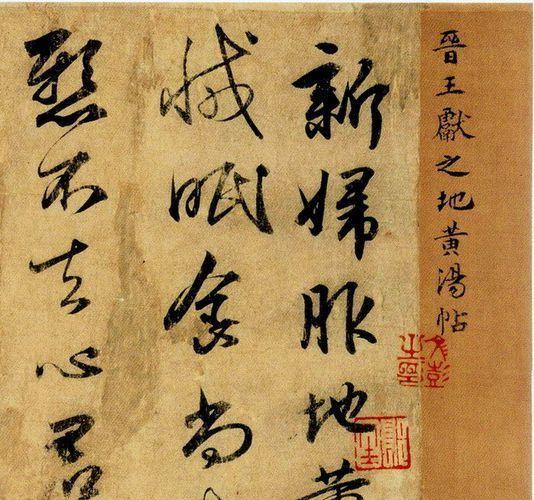 晉王獻之地黃湯帖
新婦服地黃
減眠食尚
慰不去心君